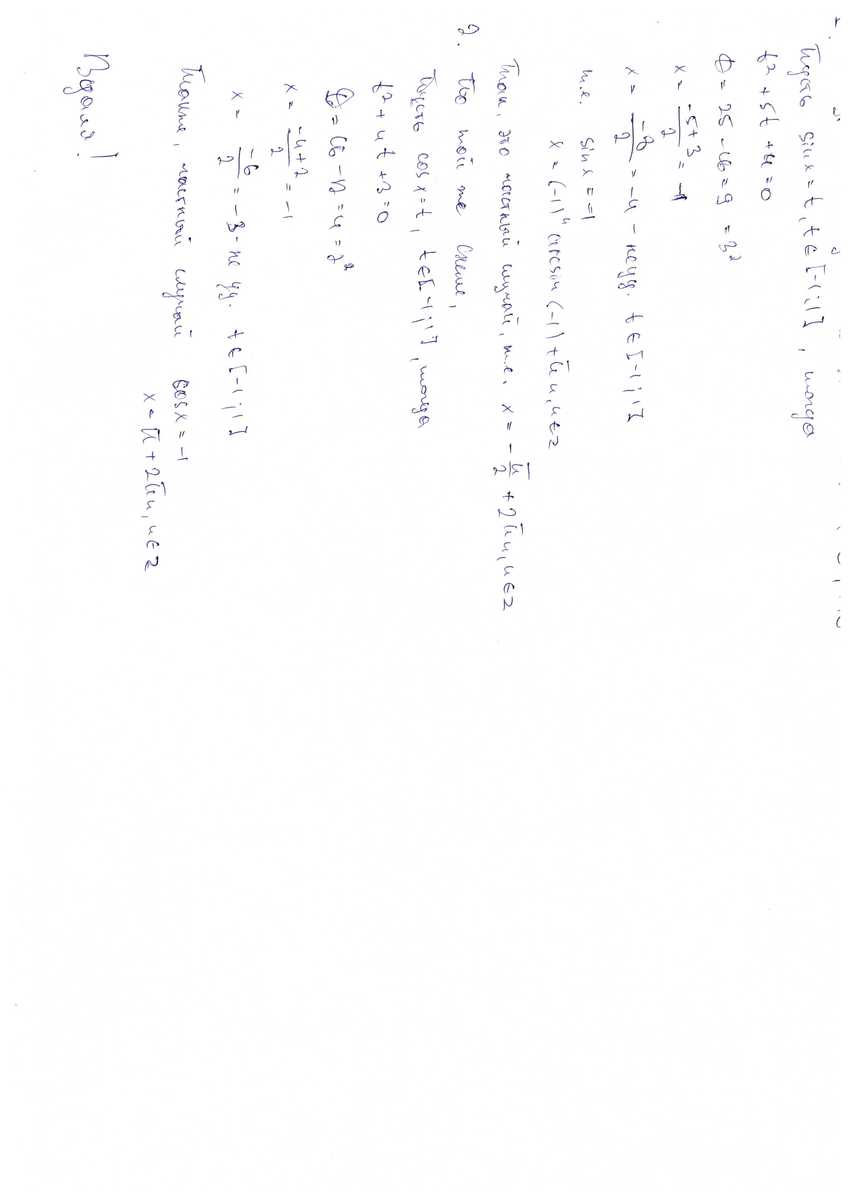 1.
Пусть sin x = t, t ∈ [-1; 1], тогда
t² + 5t + 4 = 0
D = 25 - 16 = 9 = 3²
x = (-5+3)/2 = -1
x = -8/2 = -4 - не уд. t ∈ [-1; 1]
т.е. sin x = -1
x = (-1)ⁿ arcsin (-1) + πn, n ∈ z
Так, это частный случай, т.е. x = - π/2 + 2πn, n ∈ z
2. По той же схеме,
Пусть cos x = t, t ∈ [-1; 1], тогда
t² + 4t + 3 = 0
D = 16 - 12 = 4 = 2²
x = (-4+2)/2 = -1
x = -6/2 = -3 - не уд. t ∈ [-1; 1]
Также, частный случай cos x = -1
x = π + 2πn, n ∈ z